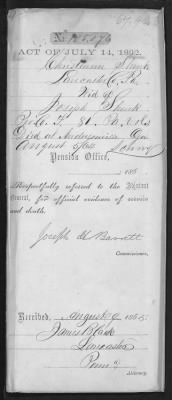 ACT OF JULY 14, 1862.
Christiana Shenk
Lancaster Co. Pa.
Wid of
Joseph Shenk
Died at Andersonville Ga
August
Pension Office,
186
Respectfully referred to the Adjutant
General, for official evidence of service
and death.
Joseph H Barrett
Commissioner.
Received, August 1865
James Black
Lancaster
Penn
Attorney.